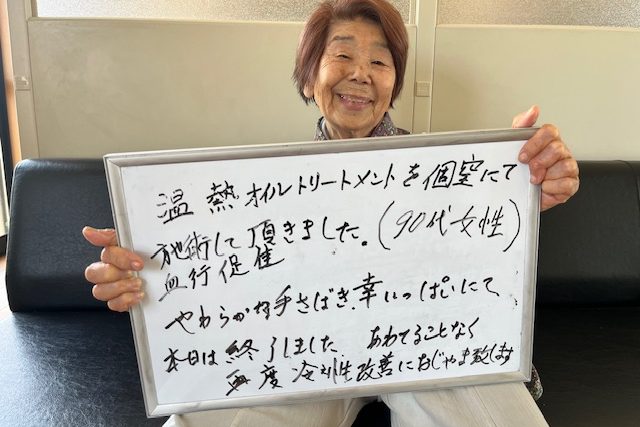 温熱オイルトリートメントを個室にて
施術して頂きました。(90代女性)
血行促進
やわらかな手さばき、幸いっぱいにて
本日は終了しました あわてることなく
再度冷え性改善におじゃま致します